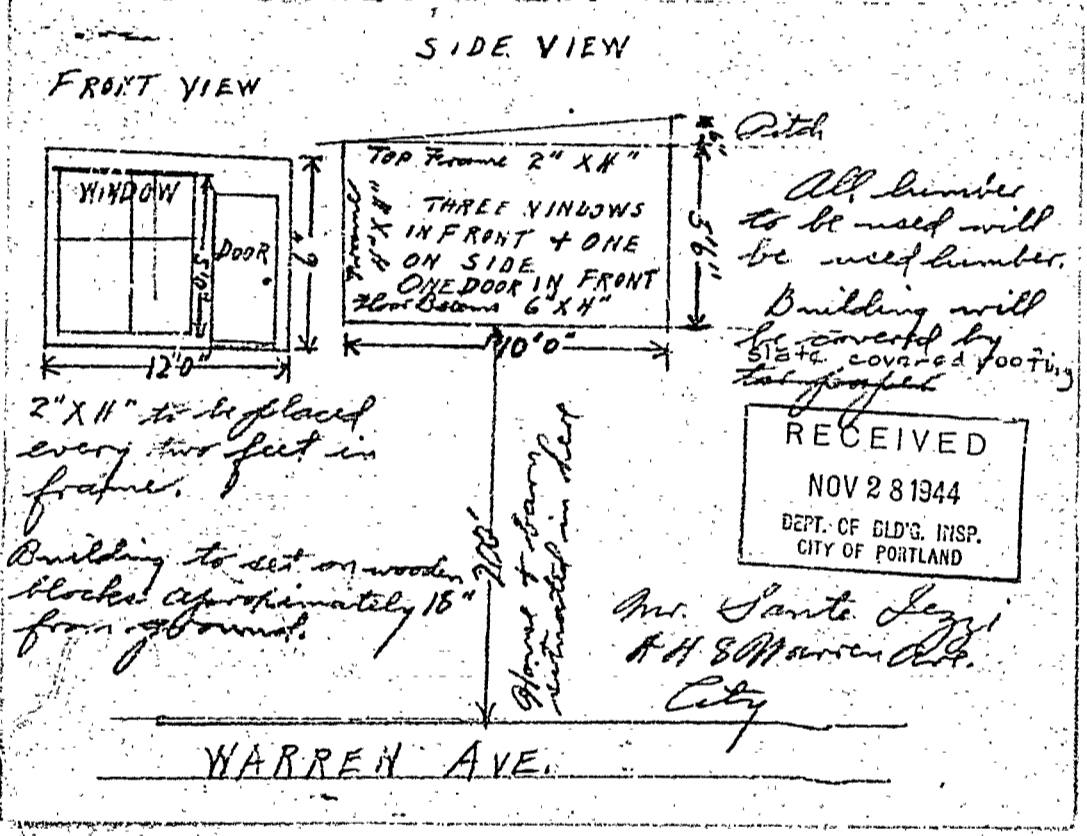 SIDE VIEW
FRONT VIEW
WINDOW
DOOR
5'0"
12'0"
Top Frame 2" X 4"
THREE WINDOWS
IN FRONT + ONE
ON SIDE
ONE DOOR IN FRONT
Floor Beams 6" X 4"
10'0"
6"
Pitch
All lumber
to be used will
be used lumber.
Building will
be covered by
slate covered roofing
tar paper
2" X 4" to be placed
every two feet in
frame.
Building to set on wooden
blocks aproximately 18"
from ground.
200'
House & barn
situated in here
RECEIVED
NOV 28 1944
DEPT. OF BLD'G. INSP.
CITY OF PORTLAND
Mr. Sante Iezzi
448 Warren Ave.
City
WARREN AVE.